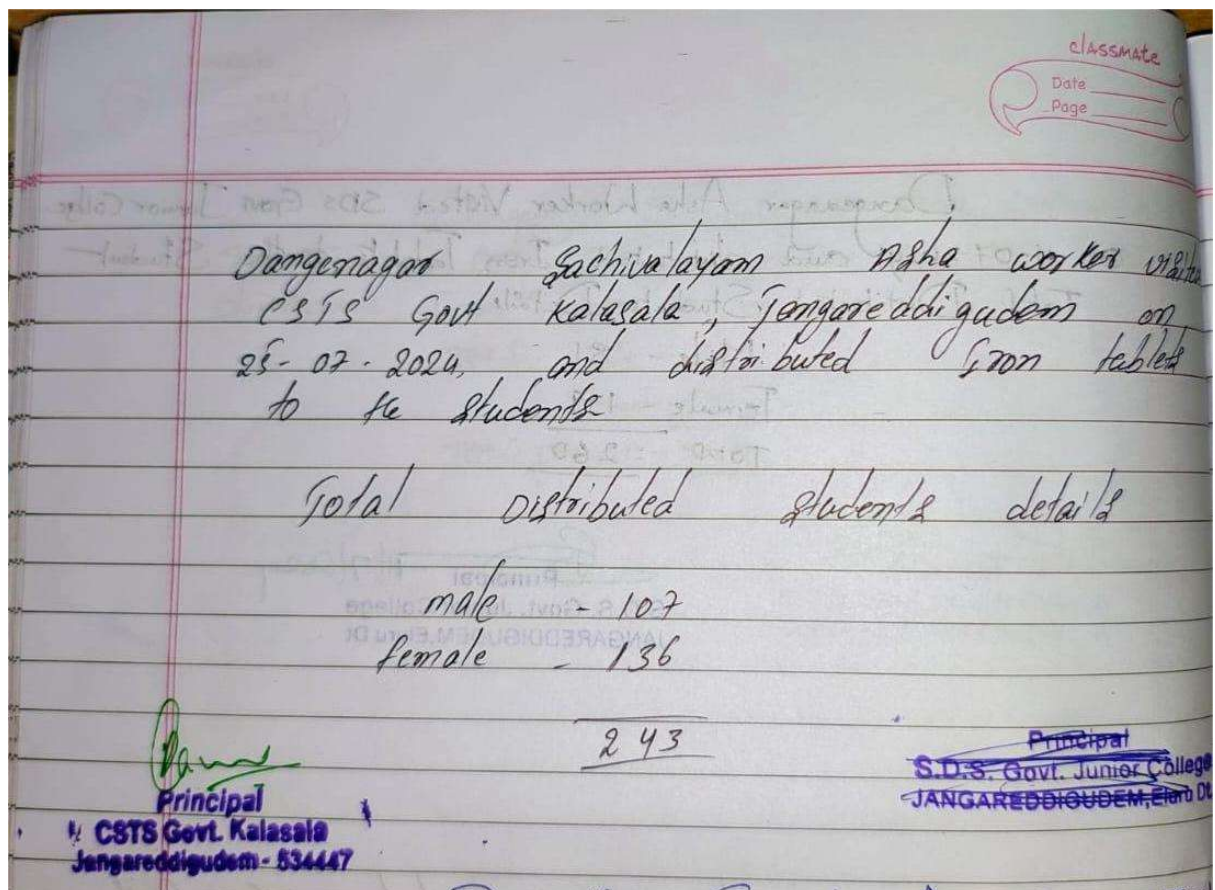 classmate
Date
Page
Dangenagar Sachivalayam Asha worker visited
CSTS Govt Kalasala, Jangareddigudem on
25-07-2024, and distributed Iron tablets
to the students
Total Distributed students details
male - 107
female - 136
243
Principal
CSTS Govt. Kalasala
Jangareddigudem - 534447
Principal
S.D.S. Govt. Junior College
JANGAREDDIGUDEM, Eluru Dt